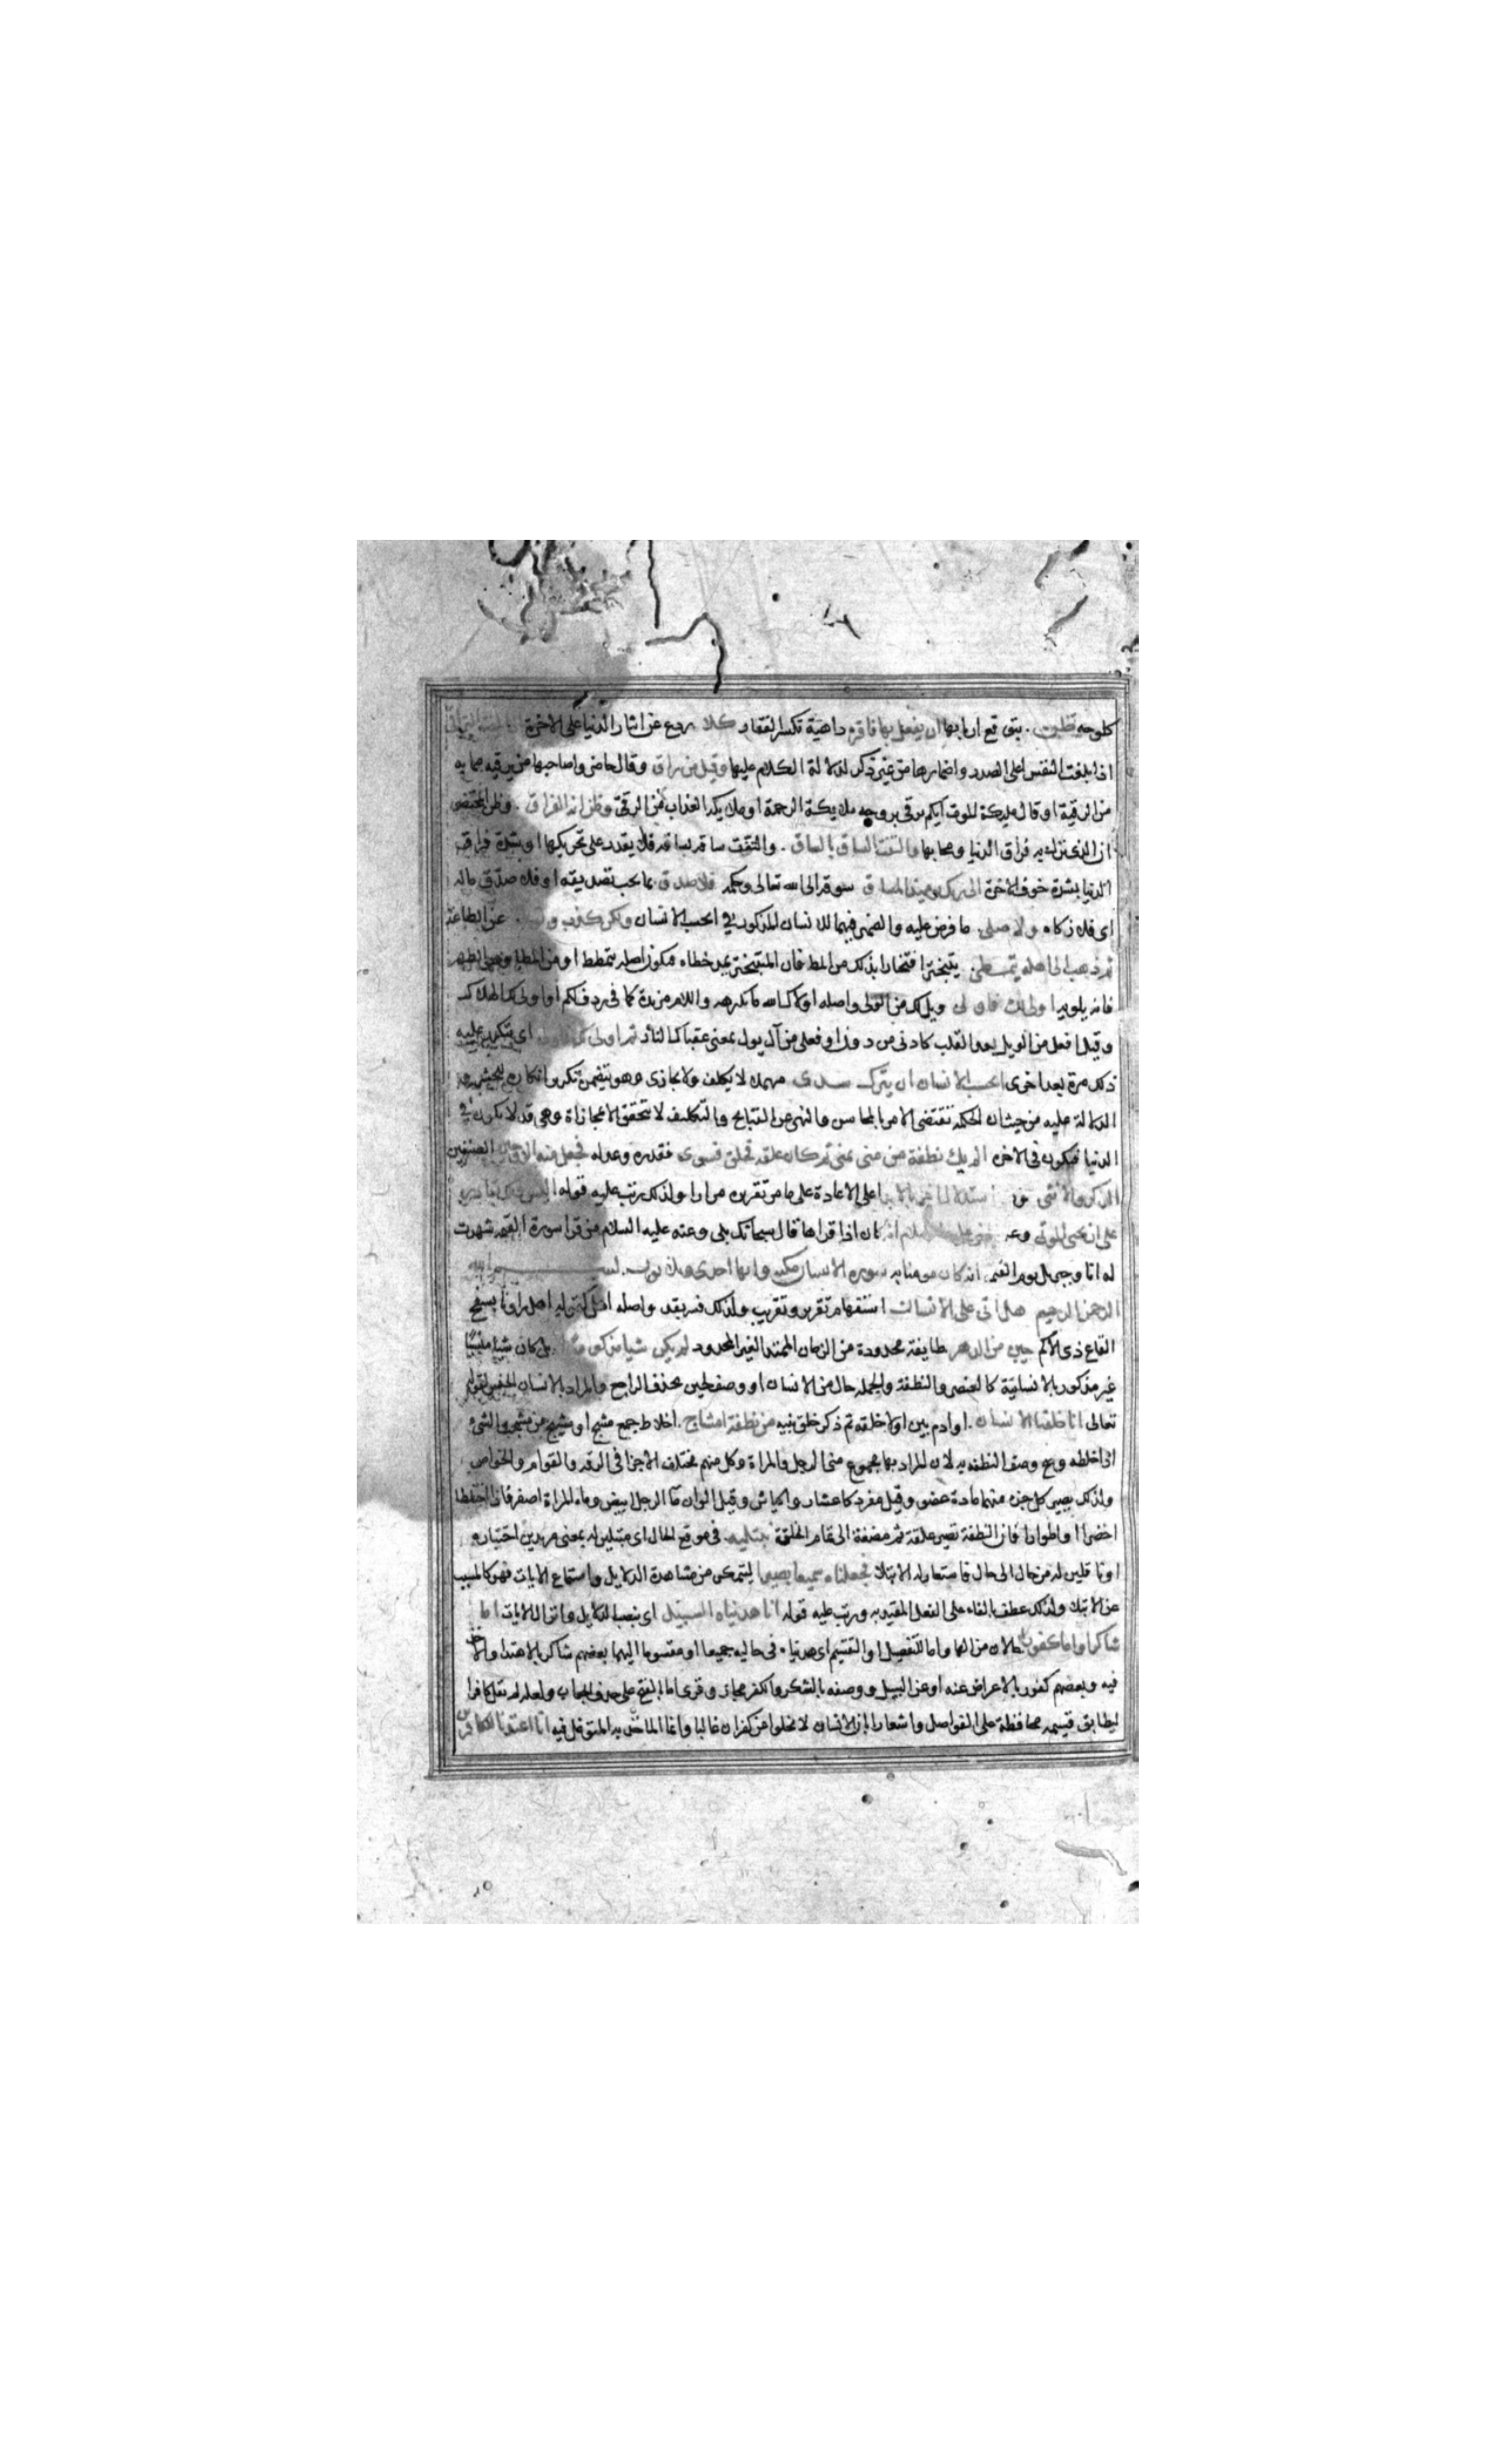 كلوحه تظن . يتوقع اربابها ان يفعل بها فاقره داهية تكسر الفقار كلا ردع عن ايثار الدنيا على الاخرة اذا بلغت التراقى
اذا بلغت النفس اعلى الصدر واضمارها من غير ذكر لدلالة الكلام عليها وقيل من راق وقال حاضرو صاحبها من يرقيه مما به
من الرقية او قال مليكة الموت ايكم يرقى بروحه ملايكة الرحمة او ملايكة العذاب من الرقى وظن انه الفراق . وظن المحتضر
ان الذى نزل به فراق الدنيا ومحابها والتفت الساق بالساق . والتفت ساقه بساقه فلا يقدر على تحريكها او بشدة فراق
الدنيا بشدة خوف الاخرة الى ربك يومئذ المساق سوقه الى الله تعالى وحكمه فلا صدق ما يجب تصديقه او فلا صدق ماله
اى فلا زكاه ولا صلى ما فرض عليه والضمير فيهما للانسان المذكور فى ايحسب الانسان ولكن كذب وتولى عن الطاعة
ثم ذهب الى اهله يتمطى . يتبختر افتخارا بذلك من المط فان المتبختر يمد خطاه فيكون اصله يتمطط او من المطا وهو الظهر
فانه يلويه اولى لك فاولى ويل لك من الولى واصله اولاك الله ما تكرهه واللام مزيدة كما فى ردف لكم او اولى لك الهلاك
وقيل افعل من الويل بعد القلب كادنى من دون او فعلى من آل يول بمعنى عقباك النار ثم اولى لك فاولى اى يتكرر عليه
ذلك مرة بعد اخرى ايحسب الانسان ان يترك سدى مهملا لا يكلف ولا يجازى وهو يتضمن تكرير انكاره للحشر و
الدلالة عليه من حيث ان الحكمة تقتضى الامر بالمحاسن والنهى عن القبايح والتكليف لا يتحقق الا بمجازاة وهى قد لا تكون فى
الدنيا فيكون فى الاخرة الم يك نطفة من منى يمنى ثم كان علقه فخلق فسوى فقدره وعدله فجعل منه الزوجين الصنفين
الذكر والانثى وهو استدلال اخر بالابدا على الاعادة على ما مر تقريره مرارا ولذلك رتب عليه قوله اليس ذلك بقادر
على ان يحيى الموتى وعن النبى عليه السلام انه كان اذا قراها قال سبحانك بلى وعنه عليه السلام من قرا سورة القيمه شهدت
له انا وجبريل يوم القيمه انه كان مومنا به سورة الانسان مكيه وايها احدى وثلاثون . بسم الله
الرحمن الرحيم هل اتى على الانسان استفهام تقرير وتقريب ولذلك فسر بقد واصله اهل كقوله اهل راونا بسفح
القاع ذى الاكم حين من الدهر طايفة محدودة من الزمان الممتد الغير المحدود لم يكن شيا مذكورا بل كان شيا منسيا
غير مذكور بالانسانية كالعنصر والنطفة والجملة حال من الانسان او وصف لحين بحذف الراجع والمراد بالانسان الجنس لقوله
تعالى انا خلقنا الانسان . او ادم بين اولا خلقه ثم ذكر خلق بنيه من نطفة امشاج . اخلاط جمع مشج او مشيج من مشجت الشئ
اذا خلطه وجمع وصف النطفه به لان المراد بها مجموع منى الرجل والمراة وكل منهم مختلف الاجزا فى الرقه والقوام والخواص
ولذلك يصير كل جزء منهما مادة عضو وقيل مفرد كاعشار واكياش وقيل الوان ما الرجل ابيض وماء المراة اصفر فاذا اختلطا
اخضرا او اطوار فان النطفة تصير علقة ثم مضغة الى تمام الخلقة نبتليه فى موقع الحال اى مبتلين له بمعنى مريدين اختباره
او ناقلين له من حال الى حال فاستعار له الابتلا فجعلناه سميعا بصيرا ليتمكن من مشاهدة الدلايل واستماع الايات فهو كالمسبب
عن الابتلا ولذلك عطف بالفاء على الفعل المقيد به ورتب عليه قوله انا هديناه السبيل اى بنصب الدلايل وانزال الايات اما
شاكرا واما كفورا حالان من الها واما للتفصيل او التقسيم اى هديناه فى حاليه جميعا او مقسوما اليهما بعضهم شاكر بالاهتدا والاخذ
فيه وبعضهم كفور بالاعراض عنه او عن السبيل ووصفه بالشكر والكفر مجاز وقرى اما بالفتح على حذف الجواب ولعله لم يقل كافرا
ليطابق قسيمه محافظة على الفواصل واشعارا بان الانسان لا يخلوا عن كفران غالبا وانما الماخوذ به المتوغل فيه انا اعتدنا للكافرين